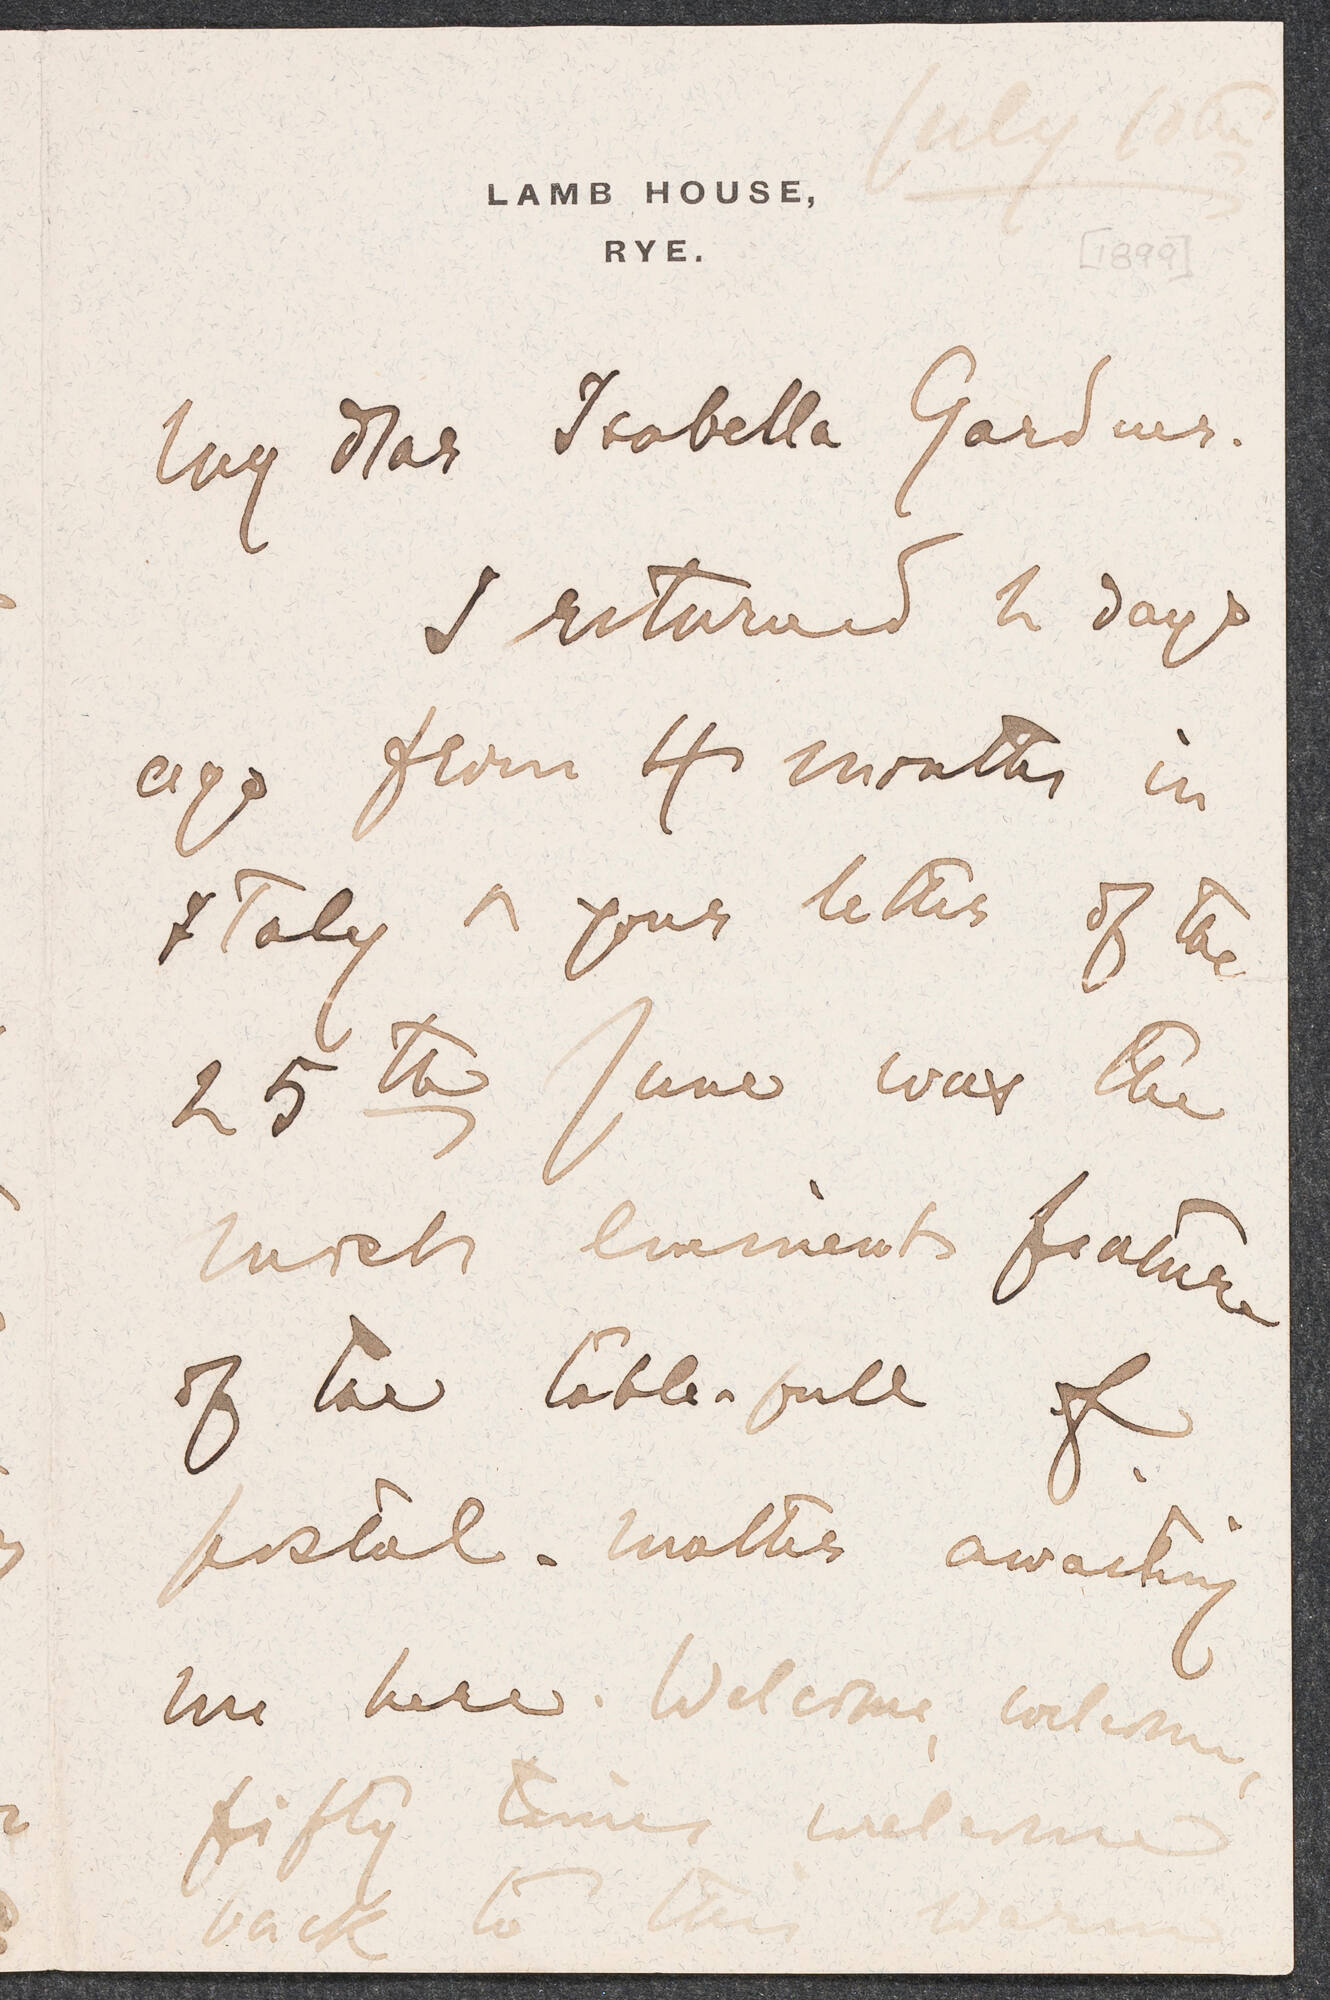 July 10th
LAMB HOUSE,
RYE.
[1899]
My dear Isabella Gardner.
I returned 2 days
ago from 4 months in
Italy & your letter of the
25th June was the
most eminent feature
of the table-full of
postal-matter awaiting
me here. Welcome, welcome,
fifty times welcome
back to this warm